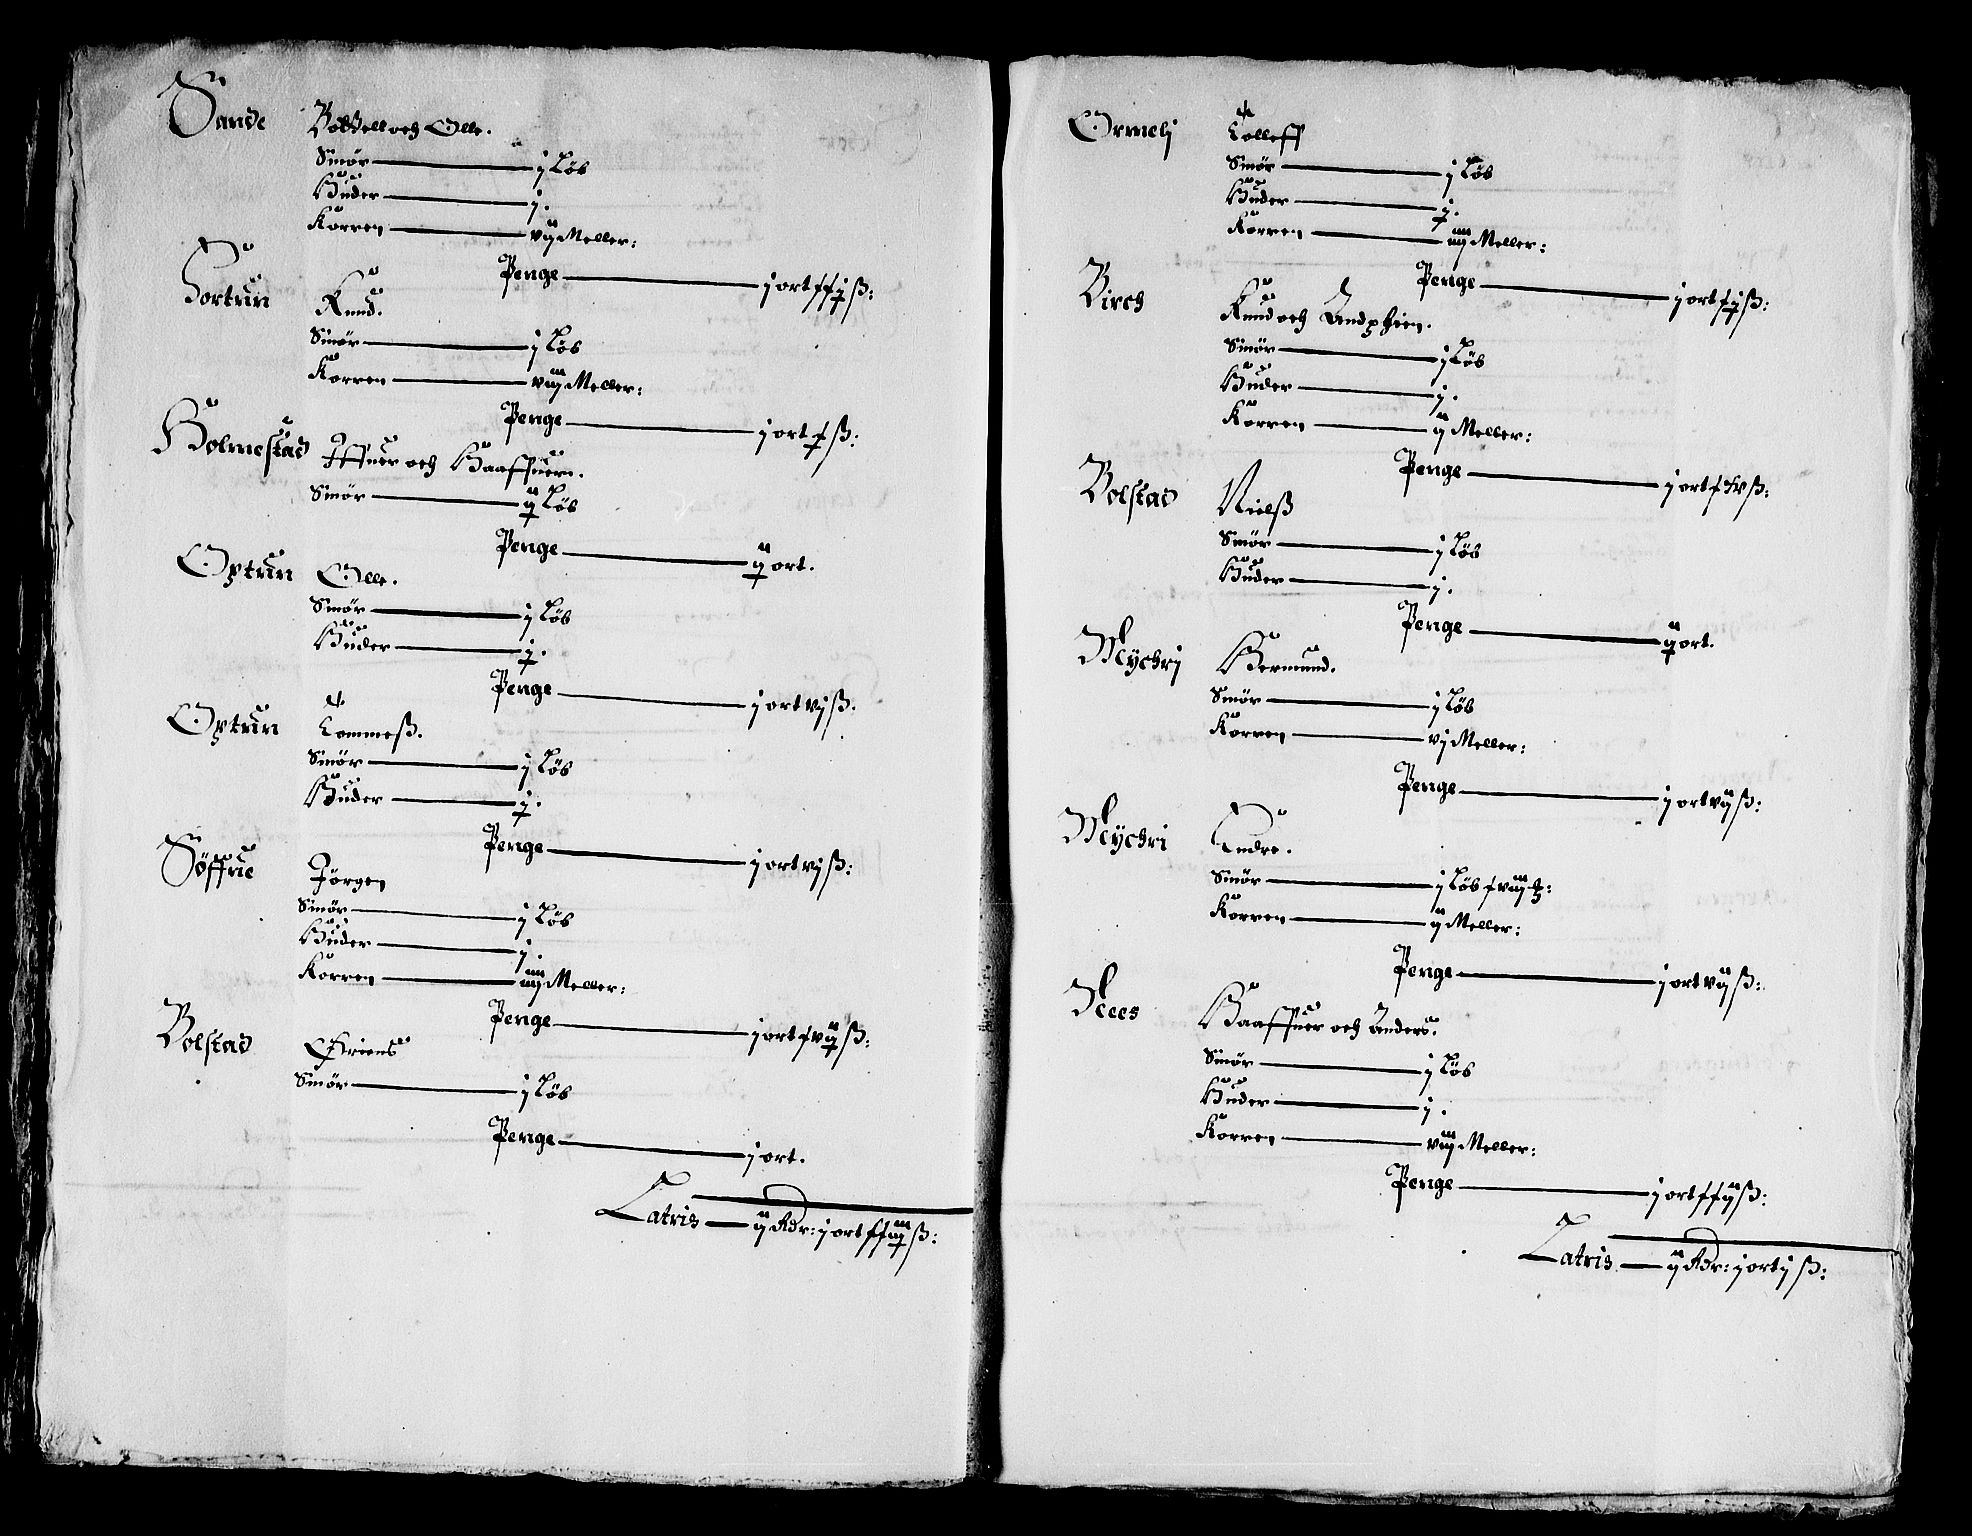 Sande
Botkell och Olle.
Smör — j Löb
Huder — j.
Korren — vij Meller:
Penge — j ort
Fortun
Knud.
Smör — j Löb
Korren — viij Meller:
Penge — j ort
Holmestad
Iffuer och Haaffuern.
Smör — Löb
Penge — ort.
Optun
Olle.
Smör — j Löb
Huder
Penge — j ort vj ß:
Optun
Tommeß.
Smör — j Löb
Huder
Penge — j ort vj ß:
Söffrie
Jörgen
Smör — j Löb
Huder — j.
Korren — iiij Meller:
Penge — j ort
Bolstad
Smör — j Löb
Penge — j ort.
Latris — ij Rdr: j ort
Ormelj
Tolleff
Smör — j Löb
Huder
Korren — iiij Meller:
Penge — j ort
Birch
Knud och
Smör — j Löb
Huder — j.
Korren — Meller:
Penge — j ort
Bolstad
Nielß
Smör — j Löb
Huder — j.
Penge — ort.
Myckrj
Hermund.
Smör — j Löb
Korren — vj Meller:
Penge — j ort vij ß:
Myckri
Endre.
Smör — j Löb
Korren — ij Meller:
Penge — j ort vij ß:
Nees
Haaffuer och Anders.
Smör — j Löb
Huder — j.
Korren — viij Meller:
Penge — j ort
Latris — ij Rdr: j ort j ß: